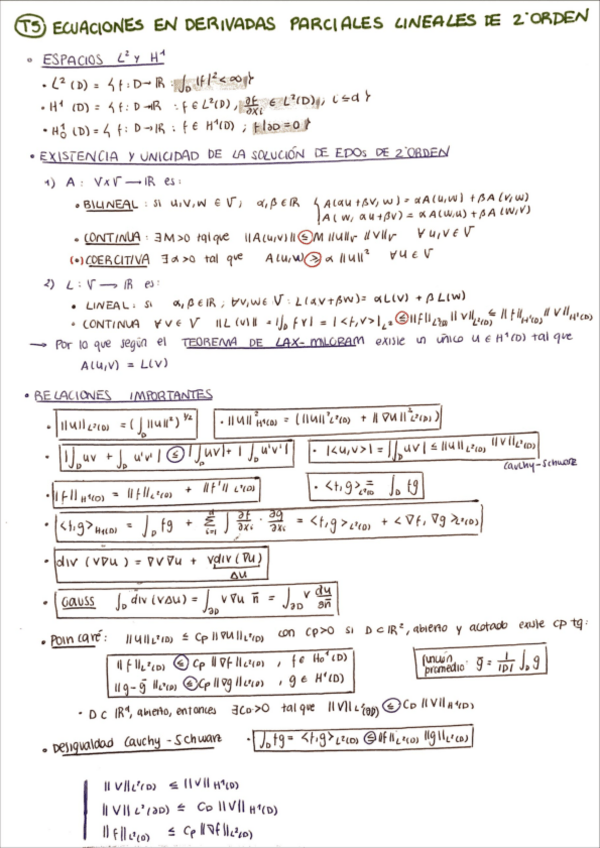 T5 ECUACIONES EN DERIVADAS PARCIALES LINEALES DE 2º ORDEN
• ESPACIOS L² Y H¹
• L²(D) = { f: D→ℝ : ∫_D |f|² < ∞ }
• H¹(D) = { f: D→ℝ : f ∈ L²(D), ∂f/∂xi ∈ L²(D), i ≤ d }
• H₀¹(D) = { f: D→ℝ : f ∈ H¹(D), f|∂D = 0 }
• EXISTENCIA Y UNICIDAD DE LA SOLUCIÓN DE EDOS DE 2º ORDEN
1) A: V×V → ℝ es:
• BILINEAL: si u,v,w ∈ V, α,β ∈ ℝ { A(αu+βv, w) = αA(u,w) + βA(v,w)
A(w, αu+βv) = αA(w,u) + βA(w,v)
• CONTINUA: ∃M>0 tal que ||A(u,v)|| ≤ M ||u||_V ||v||_V ∀u,v ∈ V
(•) COERCITIVA ∃α>0 tal que A(u,u) ≥ α ||u||² ∀u ∈ V
2) L: V → ℝ es:
• LINEAL: si α,β ∈ ℝ; ∀v,w ∈ V: L(αv+βw) = αL(v) + βL(w)
• CONTINUA ∀v ∈ V ||L(v)|| = |∫_D fv| = |<f,v>_L²| ≤ ||f||_L²(D) ||v||_L²(D) ≤ ||f||_H¹(D) ||v||_H¹(D)
→ Por lo que según el TEOREMA DE LAX-MILGRAM existe un único u ∈ H¹(D) tal que
A(u,v) = L(v)
• RELACIONES IMPORTANTES
• ||u||_L²(D) = (∫_D ||u||²)^1/2 • ||u||²_H¹(D) = (||u||²_L²(D) + ||∇u||²_L²(D))
• |∫_D uv + ∫_D u'v'| ≤ |∫_D uv| + |∫_D u'v'| • |<u,v>| = |∫_D uv| ≤ ||u||_L²(D) ||v||_L²(D)
Cauchy-Schwarz
• ||f||_H¹(D) = ||f||_L²(D) + ||f'||_L²(D) • <f,g>_L²(D) = ∫_D fg
• <f,g>_H¹(D) = ∫_D fg + Σ_i=1 ∫ ∂f/∂xi · ∂g/∂xi = <f,g>_L²(D) + <∇f, ∇g>_L²(D)
• div (v∇u) = ∇v∇u + v div(∇u)
Δu
• GAUSS ∫_D div (v∆u) = ∫_∂D v∇u n̄ = ∫_∂D v du/∂n̄
• Poincaré: ||u||_L²(D) ≤ Cp ||∇u||_L²(D) con Cp>0 si D⊂ℝ², abierto y acotado existe Cp tq:
||f||_L²(D) ≤ Cp ||∇f||_L²(D), f ∈ H₀¹(D)
||g-ḡ||_L²(D) ≤ Cp ||∇g||_L²(D), g ∈ H¹(D)
función promedio: ḡ = 1/|D| ∫_D g
• D⊂ℝ¹, abierto, entonces ∃C_D>0 tal que ||v||_L²(∂D) ≤ C_D ||v||_H¹(D)
• Desigualdad Cauchy-Schwarz • ∫_D fg = <f,g>_L²(D) ≤ ||f||_L²(D) ||g||_L²(D)
||v||_L²(D) ≤ ||v||_H¹(D)
||v||_L²(∂D) ≤ C_D ||v||_H¹(D)
||f||_L²(D) ≤ Cp ||∇f||_L²(D)